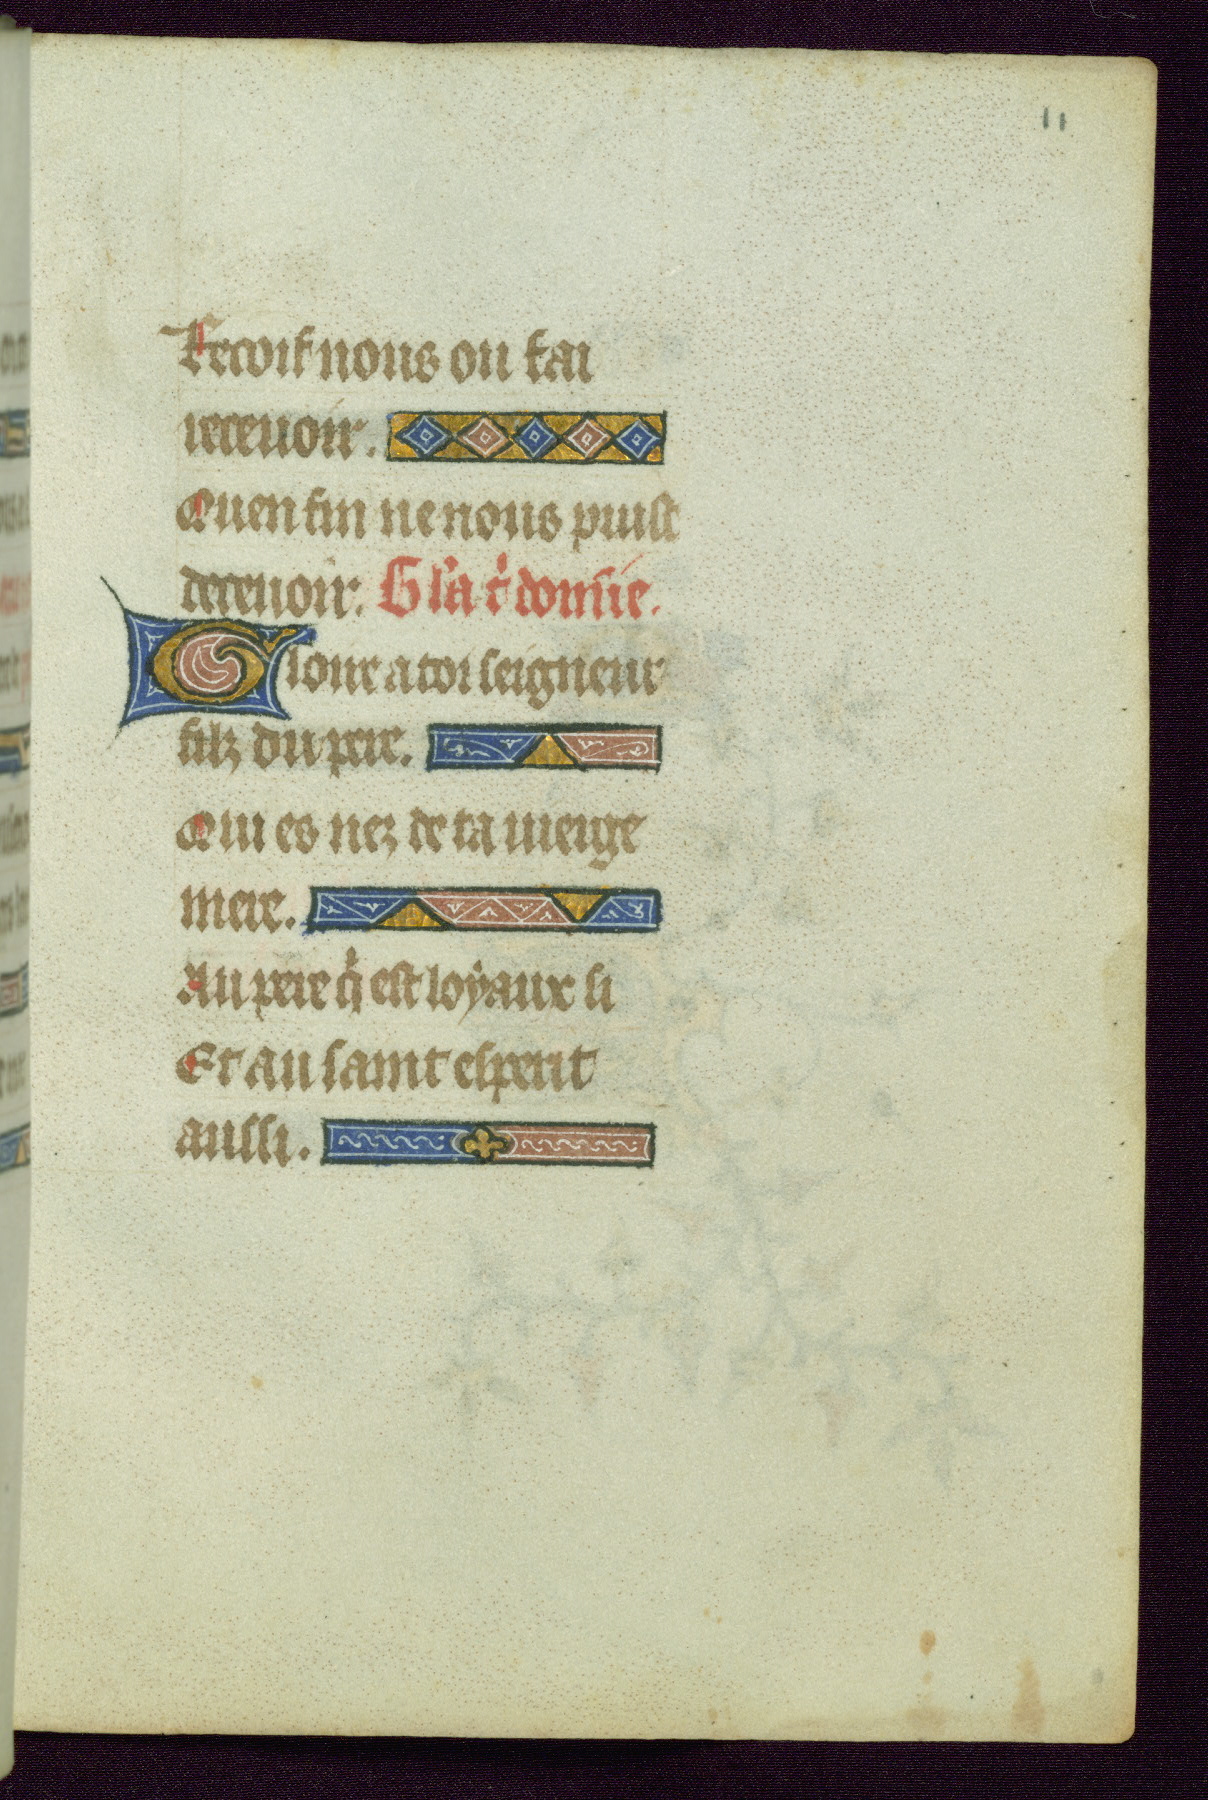 11
Recoif nous ou fai
recevoir.
Quen fin ne nous puist
decevoir. Gl'a t' domīe.
Gloire a toi seigneur
filz du pere.
Qui es nez de ta vierge
mere.
Au pere q̇ est loẏaux si
Et au saint esperit
aussi.